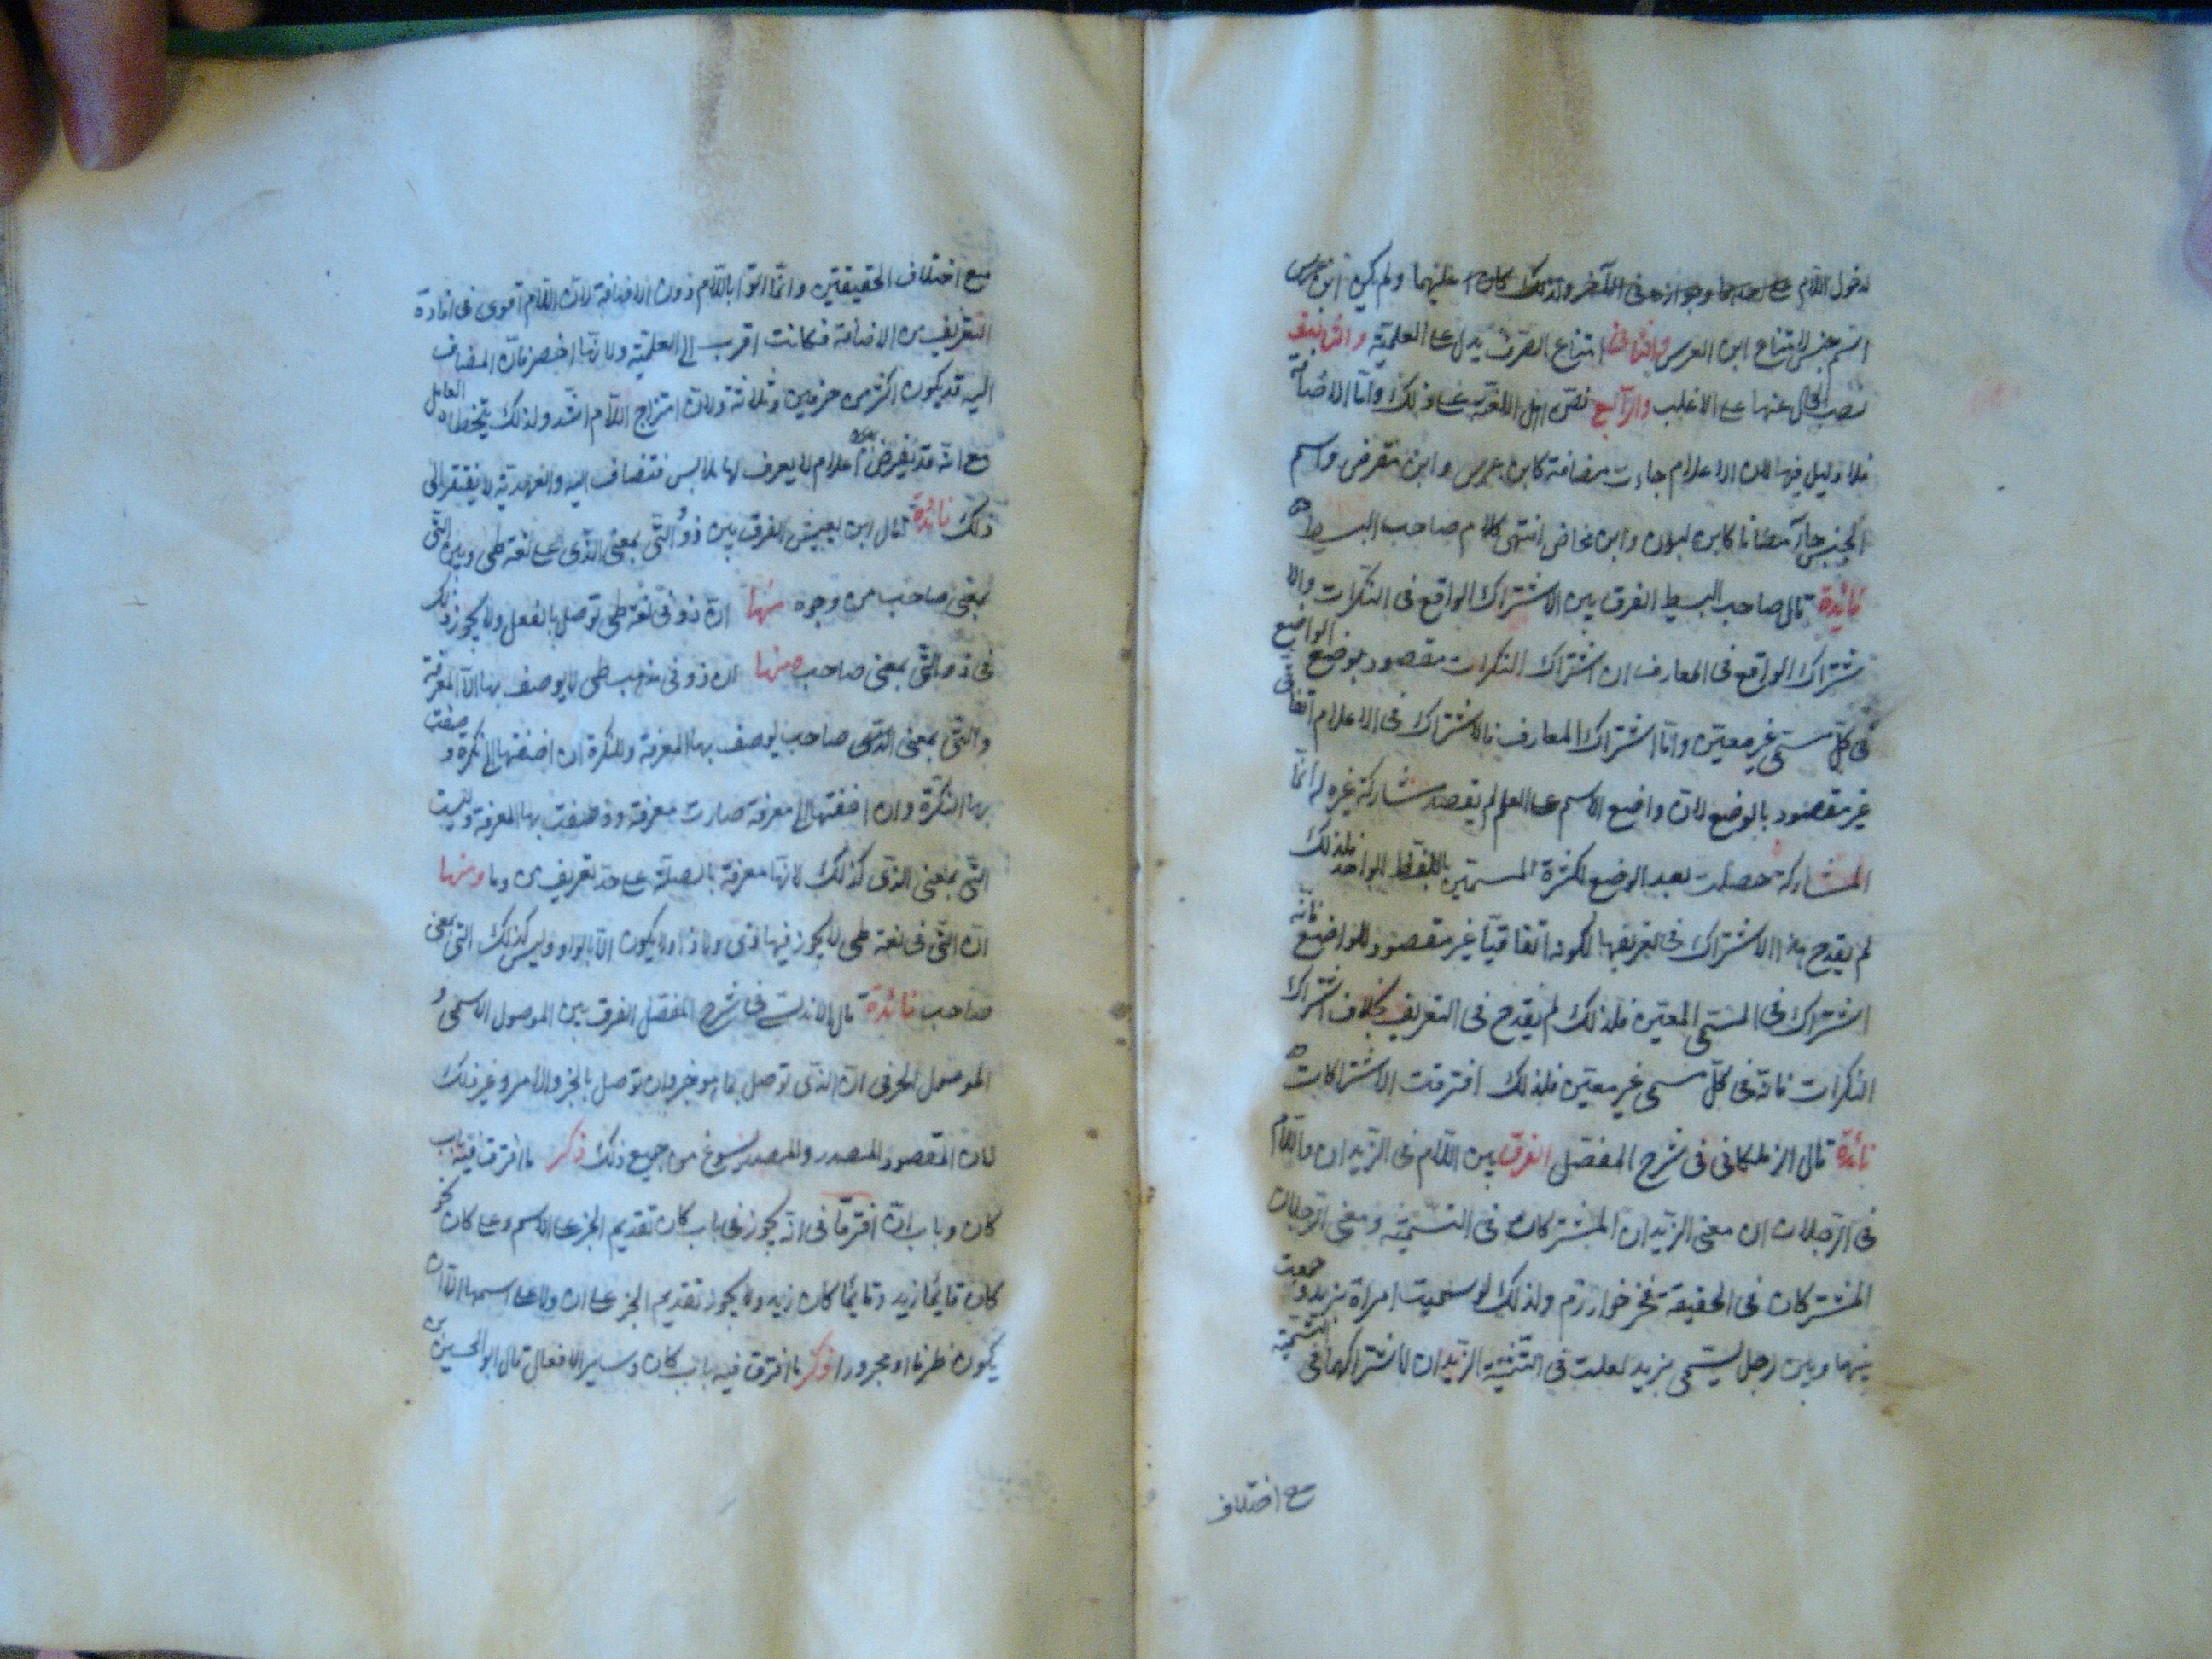 لدخول اللام على احدهما وجوازه فى الآخر ولذلك كان علميها ولم يكن ابن عرس
اسم جنس لامتناع ابن العرس والثانى امتناع الصرف يدل على العلمية والثالث
نصب الحال عنها على الاغلب والرابع نص اهل اللغة على ذلك وأما الاضافة
فلا دليل فيها لان الاعلام جاءت مضافة كابن عرس وابن مقرض واسم
الجنس جاء مضافا كابن لبون وابن مخاض انتهى كلام صاحب البسيط
فائدة قال صاحب البسيط الفرق بين الاشتراك الواقع فى النكرات والا
شتراك الواقع فى المعارف ان اشتراك النكرات مقصود بوضع الواضع
فى كل مسمى غير معين واما اشتراك المعارف فالاشتراك فى الاعلام اتفاقى
غير مقصود بالوضع لان واضع الاسم على العلم لم يقصد مشاركة غيره له انما
المشاركة حصلت بعد الوضع لكثرة المسمين باللفظ الواحد فلذلك
لم يقدح هذا الاشتراك فى تعريفها لكونه اتفاقيا غير مقصود للواضع فانه
اشتراك فى المسمى المعين فلذلك لم يقدح فى التعريف بخلاف اشتراك
النكرات فانه فى كل مسمى غير معين فلذلك افترقت الاشتراكات
فائدة قال الزملكانى فى شرح المفصل الفرق بين اللام فى الزيدان واللام
فى الرجلان ان معنى الزيدان المشتركان فى التسمية ومعنى الرجلان
المشتركان فى الحقيقة فخر خوارزم ولذلك لو سميت امراة بزيد وجمعت
بينها وبين رجل يسمى بزيد لقلت فى التثنية الزيدان لاشتراكهما فى التسمية
مع اختلاف
مع اختلاف الحقيقتين وانما اتوا باللام دون الاضافة لان اللام اقوى فى افادة
التعريف من الاضافة فكانت اقرب الى العلمية ولانها اخصر فان المضاف
اليه قد يكون اكثر من حرفين وثلاثة ولان امتزاج اللام اشد ولذلك يتخطاه العامل
مع انه قد يفرض اعلام لا يعرف لها ملابس فتضاف اليه والعهدية لا يفتقر الى
ذلك فائدة قال ابن يعيش الفرق بين ذو التى بمعنى الذى على لغة طى وبين التى
بمعنى صاحب من وجوه منها ان ذو فى لغة طى توصل بالفعل ولا يجوز ذلك
فى ذو التى بمعنى صاحب ومنها ان ذو فى مذهب طى لا يوصف بها الا المعرفة
والتى بمعنى صاحب يوصف بها المعرفة والنكرة ان اضفتها الى نكرة وصفت
بها النكرة وان اضفتها الى معرفة صارت معرفة ووصفت بها المعرفة وليست
التى بمعنى الذى كذلك لانها معرفة بالصلة على حد تعريف من وما ومنها
ان التى فى لغة طى لا يجوز فيها ذى ولا ذا ولا يكون الا بالواو وليس كذلك التى بمعنى
صاحب فائدة قال الاندلسى فى شرح المفصل الفرق بين الموصول الاسمى و
الموصول الحرفى ان الذى توصل بما هو خبر وان توصل بالخبر والامر وغير ذلك
لان المقصود المصدر والمصدر يسوغ من جميع ذلك ذكر ما افترق فيه باب
كان وباب ان افترقا فى انه يجوز فى باب كان تقديم الخبر على الاسم وعلى كان نحو
كان قايما زيد وقايما كان زيد ولا يجوز تقديم الخبر على ان ولا على اسمها الا ان
يكون ظرفا او مجرورا ذكر ما افترق فيه باب كان وسير الافعال قال ابو الحسين بن